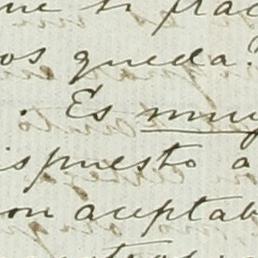 me si frac
os queda?
. Es muy
ispuesto a
on aceptab